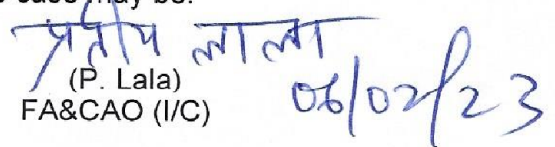 case may be.
प्रदीप लाला
(P. Lala)
FA&CAO (I/C) 06/02/23